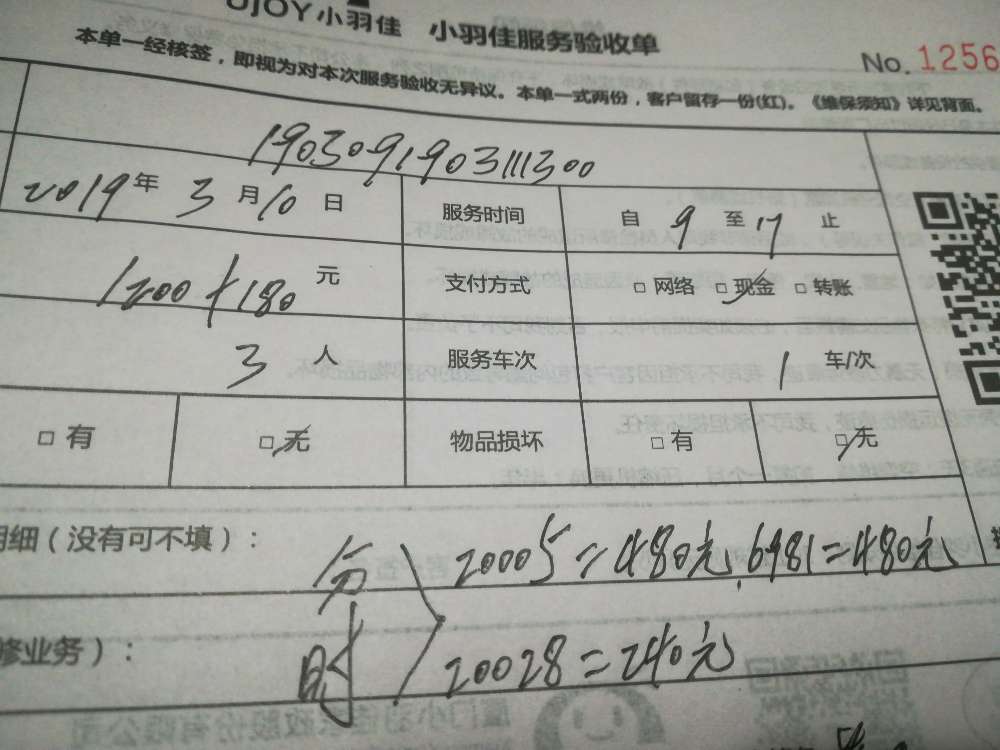 UJOY小羽佳 小羽佳服务验收单
No. 1256
本单一经核签，即视为对本次服务验收无异议。本单一式两份，客户留存一份(红)。《维保须知》详见背面。
1903091903111300
2019年 3月10日 服务时间 自 9 至 17 止
1200+180 元 支付方式 □ 网络 □ 现金 □ 转账
3 人 服务车次 1 车/次
□ 有 □ 无 物品损坏 □ 有 □ 无
明细（没有可不填）：
分时 20005=480元,6981=480元
修业务）：
20028=240元